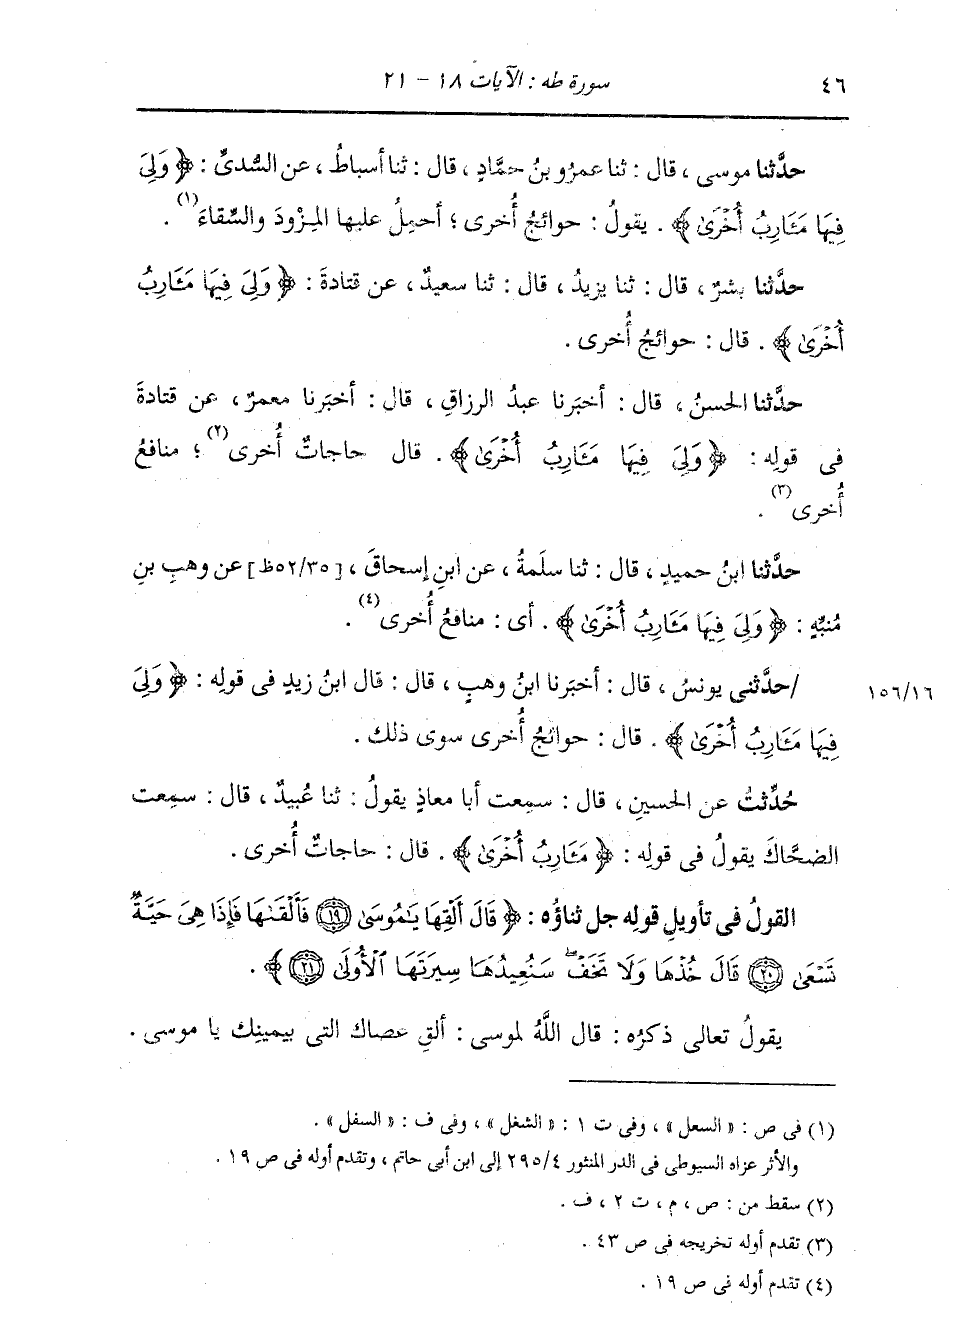 ٤٦
سورة طه : الآيات ١٨ - ٢١
حدَّثنا موسى ، قال : ثنا عمرُو بنُ حمَّادٍ ، قال : ثنا أسباطُ ، عن السُّدىِّ : ﴿ وَلِىَ
فِيهَا مَـَٔارِبُ أُخْرَىٰ ﴾ . يقولُ : حوائجُ أُخرى ؛ أحمِلُ عليها المِزْودَ والسِّقاءَ (١) .
حدَّثنا بشرٌ ، قال : ثنا يزيدُ ، قال : ثنا سعيدٌ ، عن قتادةَ : ﴿ وَلِىَ فِيهَا مَـَٔارِبُ
أُخْرَىٰ ﴾ . قال : حوائجُ أُخرى .
حدَّثنا الحسنُ ، قال : أخبَرنا عبدُ الرزاقِ ، قال : أخبَرنا معمرٌ ، عن قتادةَ
فى قولِه : ﴿ وَلِىَ فِيهَا مَـَٔارِبُ أُخْرَىٰ ﴾ . قال حاجاتٌ أُخرى (٢) ؛ منافعُ
أُخرى (٣) .
حدَّثنا ابنُ حميدٍ ، قال : ثنا سلَمةُ ، عن ابنِ إسحاقَ ، [٥٢/٣٥ظ] عن وهبِ بنِ
مُنبِّهٍ : ﴿ وَلِىَ فِيهَا مَـَٔارِبُ أُخْرَىٰ ﴾ . أى : منافعُ أُخرى (٤) .
/حدَّثنى يونسُ ، قال : أخبَرنا ابنُ وهبٍ ، قال : قال ابنُ زيدٍ فى قولِه : ﴿ وَلِىَ
١٥٦/١٦
فِيهَا مَـَٔارِبُ أُخْرَىٰ ﴾ . قال : حوائجُ أُخرى سوى ذلك .
حُدِّثتُ عن الحسينِ ، قال : سمِعت أبا معاذٍ يقولُ : ثنا عُبيدٌ ، قال : سمِعت
الضحَّاكَ يقولُ فى قولِه : ﴿ مَـَٔارِبُ أُخْرَىٰ ﴾ . قال : حاجاتٌ أُخرى .
القولُ فى تأويلِ قولِه جل ثناؤُه : ﴿ قَالَ أَلْقِهَا يَـٰمُوسَىٰ ۝١٩ فَأَلْقَىٰهَا فَإِذَا هِىَ حَيَّةٌ
تَسْعَىٰ ۝٢٠ قَالَ خُذْهَا وَلَا تَخَفْ ۖ سَنُعِيدُهَا سِيرَتَهَا ٱلْأُولَىٰ ۝٢١ ﴾ .
يقولُ تعالى ذكرُه : قال اللَّهُ لموسى : ألقِ عصاك التى بيمينِك يا موسى .
(١) فى ص : « السعل » ، وفى ت ١ : « الشغل » ، وفى ف : « السفل » .
والأثر عزاه السيوطى فى الدر المنثور ٢٩٥/٤ إلى ابن أبى حاتم ، وتقدم أوله فى ص ١٩ .
(٢) سقط من : ص ، م ، ت ٢ ، ف .
(٣) تقدم أوله تخريجه فى ص ٤٣ .
(٤) تقدم أوله فى ص ١٩ .